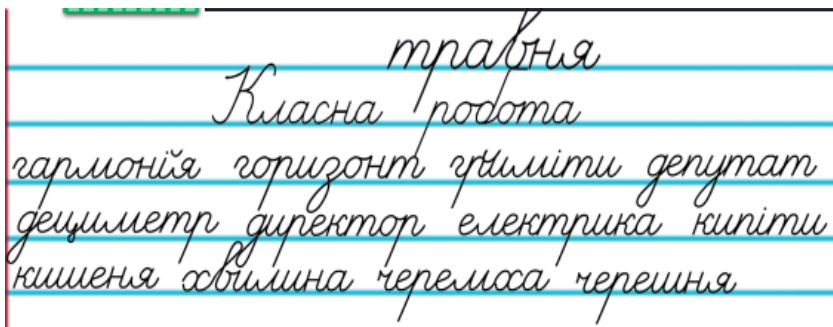 травня
Класна робота
гармонія горизонт гриміти депутат
дециметр директор електрика кипіти
кишеня хвилина черемха черешня